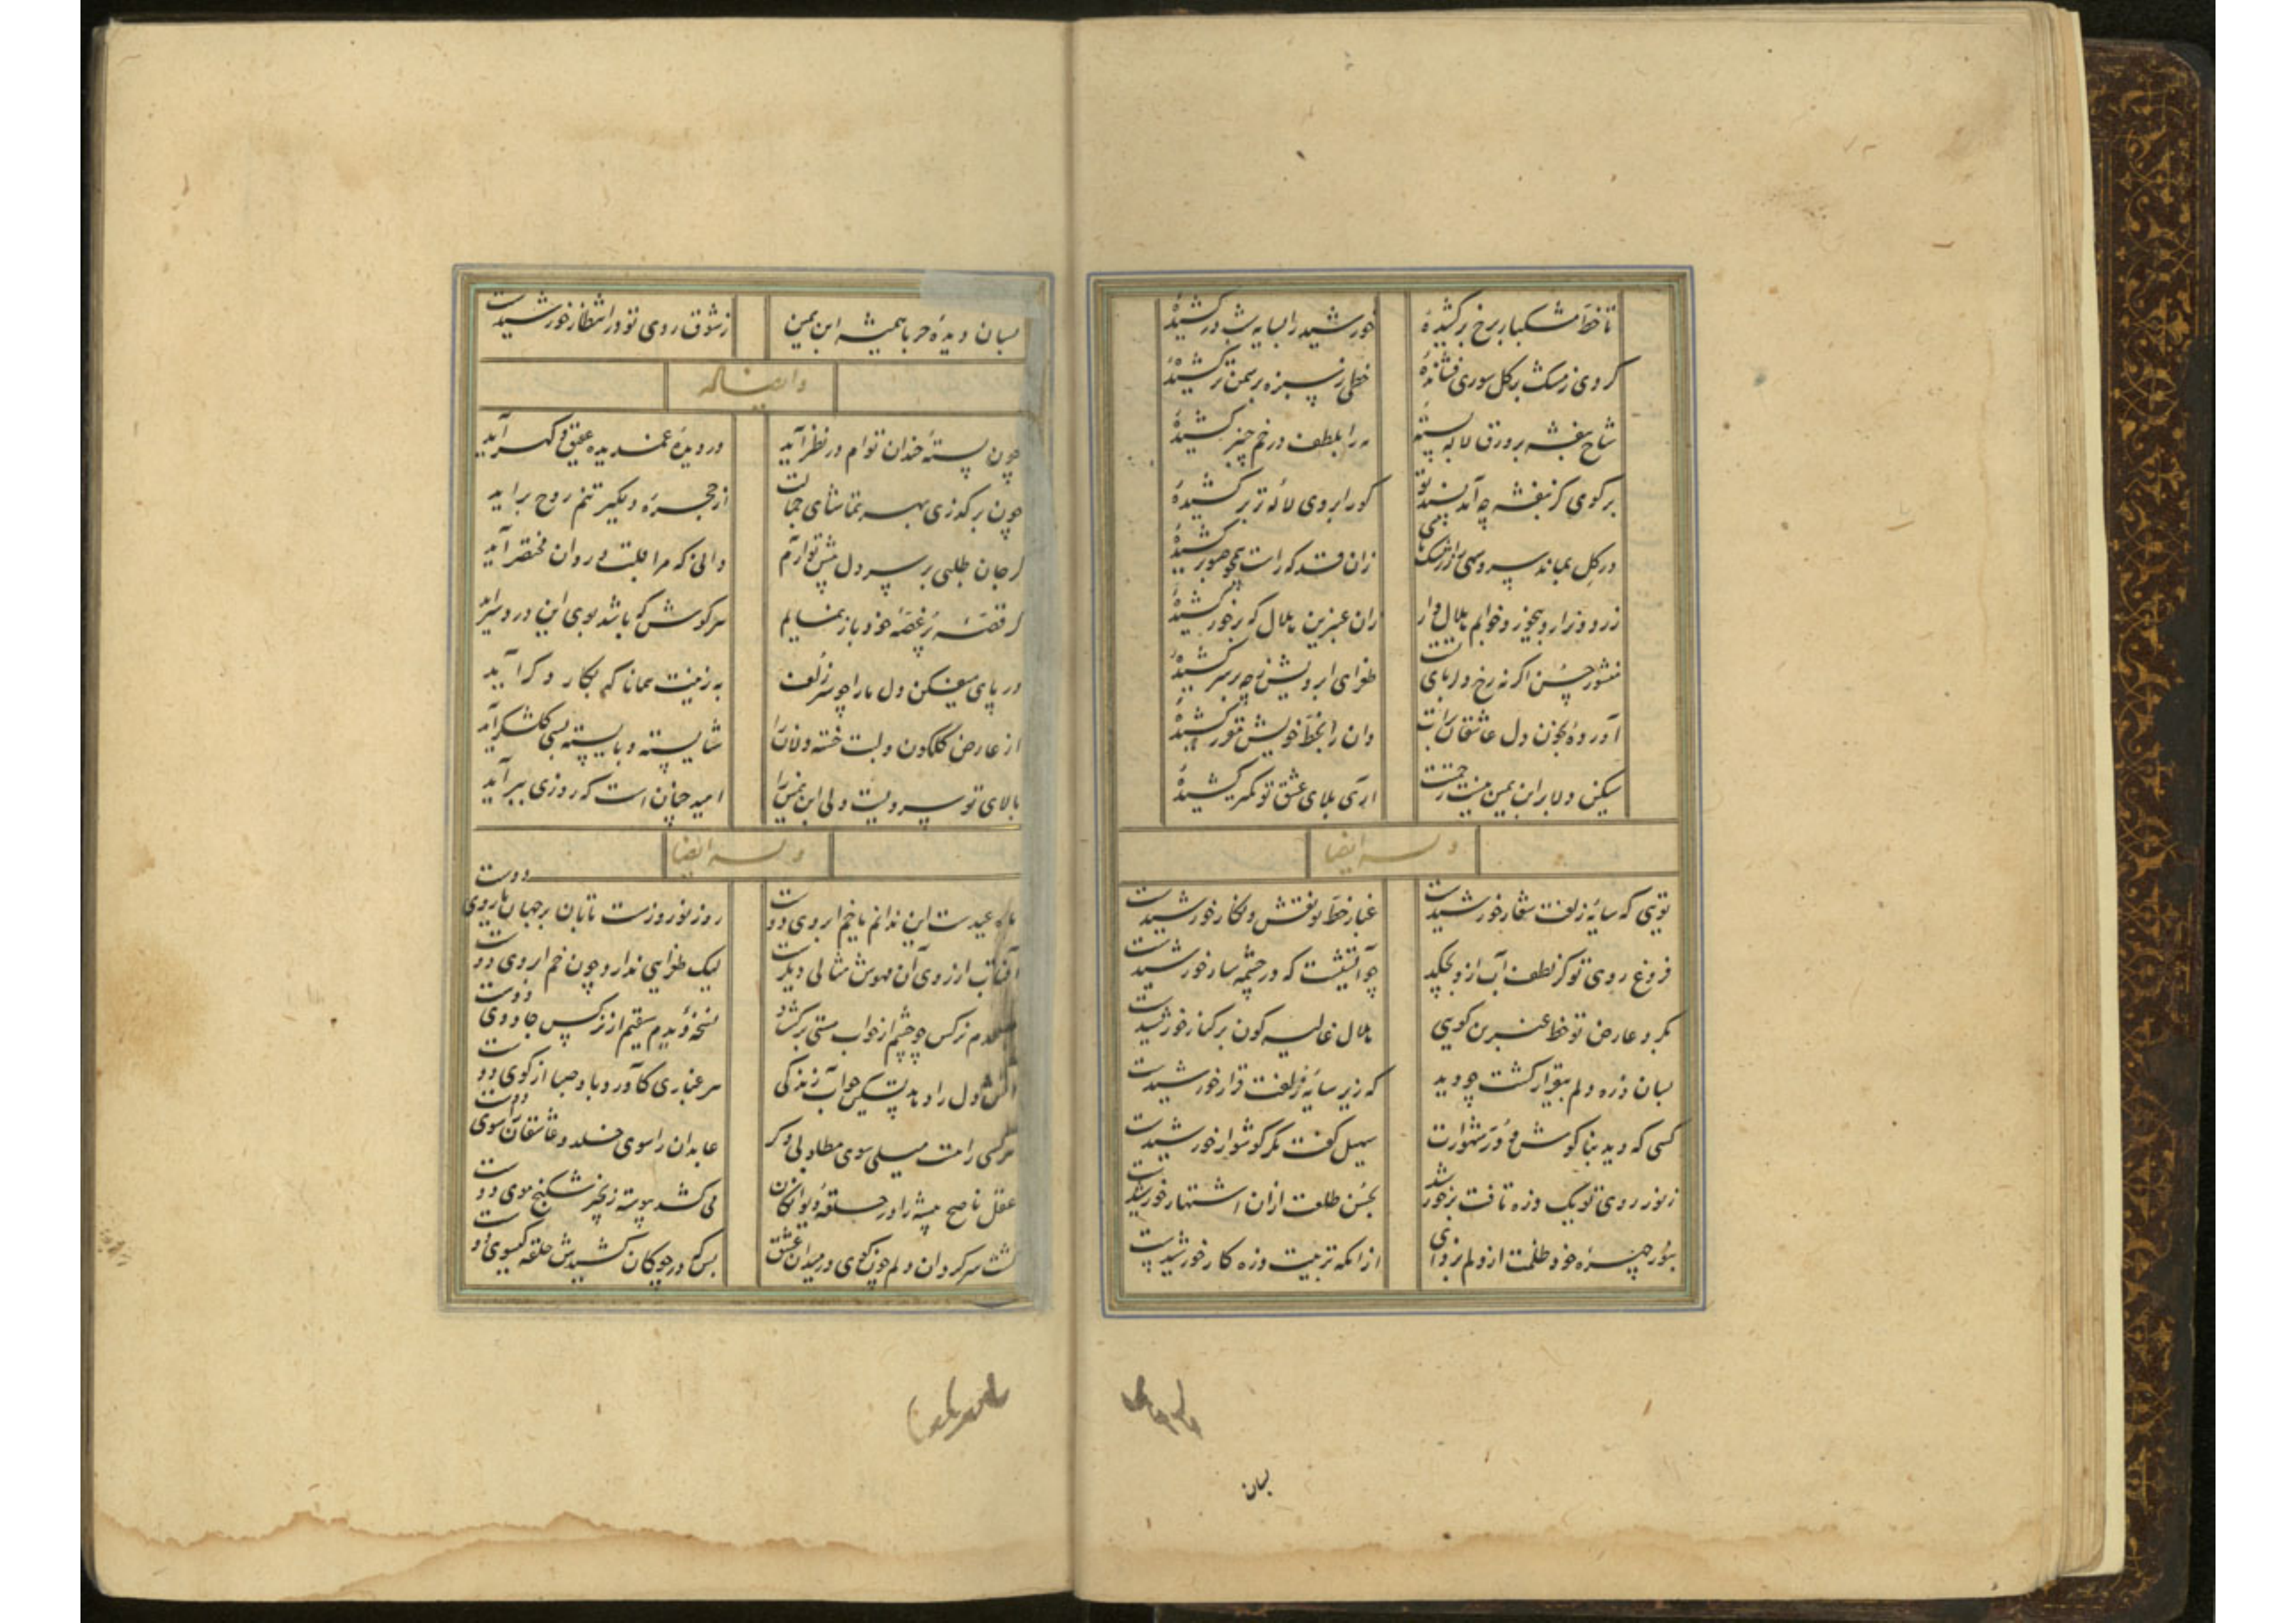 تا خط مشکبار برخ برکشیدهٔ خورشید را بسایه شب درکشیدهٔ
کردی ز مشک بر گل سوری فشاندهٔ خطی ز سبزه بر سمن تر کشیدهٔ
شاخ بنفشه بر ورق لاله بستهٔ مه را بلطف در خم چنبر کشیدهٔ
بر گوی کز بنفشه چه آمد پسند تو کورا بروی لالهٔ تر برکشیدهٔ
در گل بماند سرو سهی را ز رشک پای زان قد که راست همچو صنوبر کشیدهٔ
زرد و نزار و بیخور و خوابم هلال وار زان عنبرین هلال که بر خور کشیدهٔ
منشور حسن اگر نه رخ دلربای تست طغرای ابرویش ز چه بر سر کشیدهٔ
آوردهٔ بخون دل عاشقان برات وان را بخط خویش مقرر کشیدهٔ
مسکین دلا بر ابن یمین نیست رحمتت آری بلای عشق تو کمتر کشیدهٔ
وله ایضا
تویی که سایهٔ زلفت شعار خورشیدست غبار خط تو نقش و نگار خورشیدست
فروغ روی تو کز لطف آب ازو بچکید چو آتشیست که در چشمه سار خورشیدست
بگرد عارض تو خط عنبرین گویی هلال غالیه گون بر کنار خورشیدست
بسان ذره دلم بیقرار گشت چو دید که زیر سایهٔ زلفت قرار خورشیدست
کسی که دید بناگوش و در شهوارت سهیل گفت مگر گوشوار خورشیدست
ز نور روی تو یک ذره تافت بر خورشید بحسن طلعت ازان اشتهار خورشیدست
بنور چهره خود ظلمت از دلم بزدای از انکه تربیت ذره کار خورشیدست
بسان
بسان دیدهٔ حربا همیشه ابن یمین ز شوق روی تو در انتظار خورشیدست
و ایضا له
چون پستهٔ خندان توام در نظر آید در دیدهٔ غمدیده عقیق و گهر آید
چون برگذری بهر تماشای جمالت از حجرهٔ دلگیر تنم روح بر آید
گر جان طلبی بر سر دل پیش تو آرم دانی که مرا جلب روان مختصر آید
گر قصهٔ پر غصهٔ خود باز نمایم هر گوش که باشد بوی این درد سر آید
در پای میفکن دل ما را چو سر زلف به زینت همانا که بکار دگر آید
از عارض گلگون و لبت خسته دلانرا شایسته و بایسته بسی گلشکر آید
بالای تو سرویست ولی ابن یمین را امید چنان است که روزی ببر آید
وله ایضا
ماه عیدست این ندانم یا خم ابروی دوست روز نوروزست تابان بر جهان یا روی دوست
آفتاب از روی آن مهوش مثالی دیگرست لیک طغرایی ندارد چون خم ابروی دوست
صبحدم نرگس چو چشم از خواب مستی برگشاد نسخهٔ دیدم سقیم از نرگس جادوی دوست
آتش دل را دهد تسکین چو آب زندگی هر غباری کآورد باد صبا از کوی دوست
هر کسی را هست میلی سوی مطلوبی دگر عابدان را سوی خلد و عاشقان را سوی دوست
عقل ناصح پیشه را در حلقهٔ دیوانگان می کشد پیوسته زنجیر شکنج موی دوست
گشت سرگردان دلم چون گوی در میدان عشق بس که در چوگان کشیدش حلقه گیسوی دوست